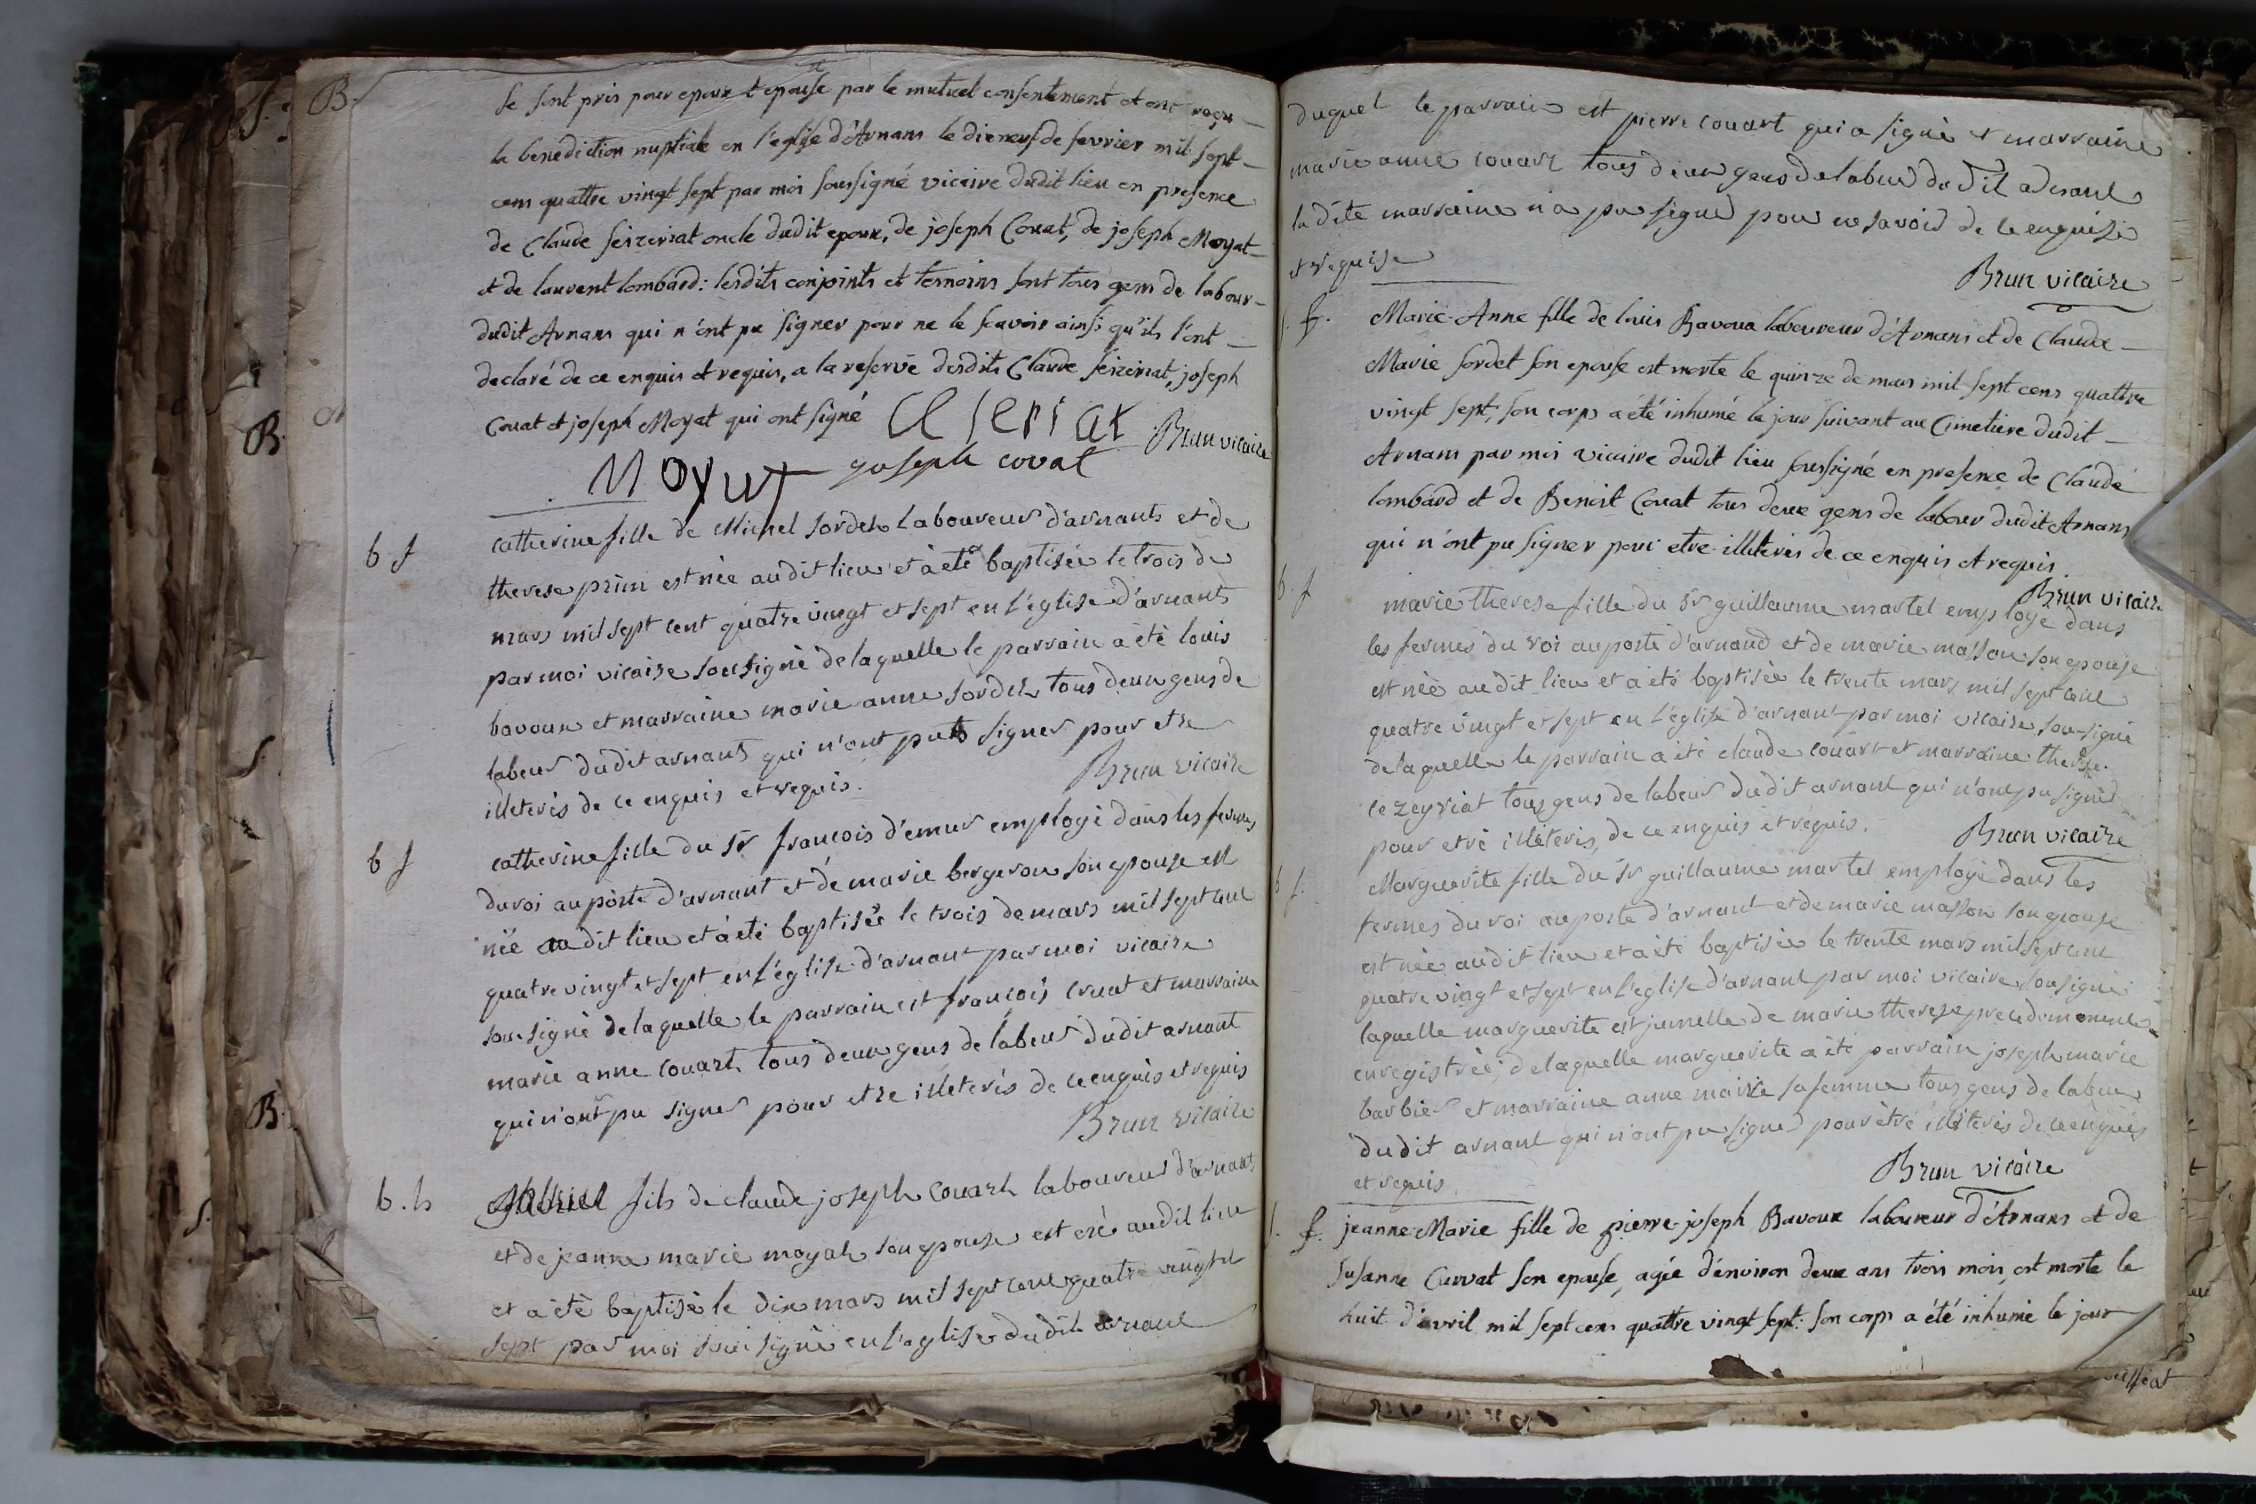 B.
Se sont pris pour epoux et epouse par le mutuel consentement et ont reçu
la benediction nuptiale en l'eglise d'Arnans le dixneuf de fevrier mil sept
cens quattre vingt sept par moi soussigné vicaire dudit lieu en presence
de Claude seizeriat oncle dudit epoux, de joseph Couat, de joseph Moyat
et de laurent lombard: lesdits conjoints et temoins sont tous gens de labour
dudit Arnans qui n'ont pu signer pour ne le scavoir ainsi qu'ils l'ont
declaré de ce enquis et requis, a la reserve desdits Claude seizeriat, joseph
Couat et joseph Moyat qui ont signé
Brun vicaire
Moyat joseph covat
b f
catherine fille de Michel sordet laboureur d'arnants et de
therese prim est née audit lieu et à eté baptisée le trois de
mars mil sept cent quatre vingt et sept en l'eglise d'arnants
par moi vicaire sousigné de laquelle le parrain a èté louis
bavoux et marraine marie anne sordet tous deux gens de
labeur dudit arnants qui n'ont puts signer pour etre
illeterès de ce enquis et requis.
Brun vicaire
b f
catherine fille du sr francois d'emur employè dans les fermes
du roi au poste d'arnant et de marie bergeron son epouse est
née audit lieu et à èté baptisée le trois de mars mil sept cent
quatre vingt et sept en l'eglise d'arnant par moi vicaire
sousignè de laquelle le parrain est françois cruat et marraine
marie anne couart tous deux gens de labeur dudit arnant
qui n'ont pu signer pour etre illeterès de ce enquis et requis
Brun vicaire
b. h
fils de claude joseph couart laboureur d'arnant
et de jeanne marie moyat son epouse est né audit lieu
et a èté baptisè le dix mars mil sept cent quatre vingt et
sept par moi sousignè en l'eglise dudit arnant
duquel le parrain est pierre couart qui a signè et marraine
marie anne couart tous deux gens de labeur dudit arnant
ladite marraine n'a pu signer pour ne savoir de ce enquise
et requise
Brun vicaire
f.
Marie-Anne fille de louis Bavoux laboureur d'Arnans et de Claude
Marie sordet son epouse est morte le quinze de mars mil sept cens quattre
vingt sept; son corps a été inhumé le jour suivant au Cimetiere dudit
Arnans par moi vicaire dudit lieu soussigné en presence de Claude
lombard et de Benoit Couat tous deux gens de labour dudit Arnans
qui n'ont pu signer pour etre illiterés de ce enquis et requis
Brun vicaire
b. f
marie therese fille du sr guillaume martel employè dans
les fermes du roi au poste d'arnand et de marie masson son epouse
est nèe audit lieu et a èté baptisée le trente mars mil sept cent
quatre vingt et sept en l'eglise d'arnant par moi vicaire sousignè
de laquelle le parrain a èté claude couart et marraine therese
cezeyriat tous gens de labeur dudit arnant qui n'ont pu signer
pour etre illèterès, de ce enquis et requis.
Brun vicaire
b f.
Marguerite fille du sr guillaume martel employè dans les
fermes du roi au poste d'arnant et de marie masson son epouse
est nèe audit lieu et a èté baptisée le trente mars mil sept cent
quatre vingt et sept en l'eglise d'arnant par moi vicaire sousignè
laquelle marguerite est jumelle de marie therese precedemment
enregistrèe; de laquelle marguerite a èté parrain joseph marie
barbier et marraine anne marie sa femme tous gens de labeur
dudit arnant qui n'ont pu signer pour être illiterès de ce enquis
et requis.
Brun vicaire
f.
jeanne-Marie fille de pierre joseph Bavoux laboureur d'Arnans et de
Susanne Curvat son epouse, agée d'environ deux ans trois mois, est morte le
huit d'avril mil sept cens quattre vingt sept: son corps a été inhumé le jour